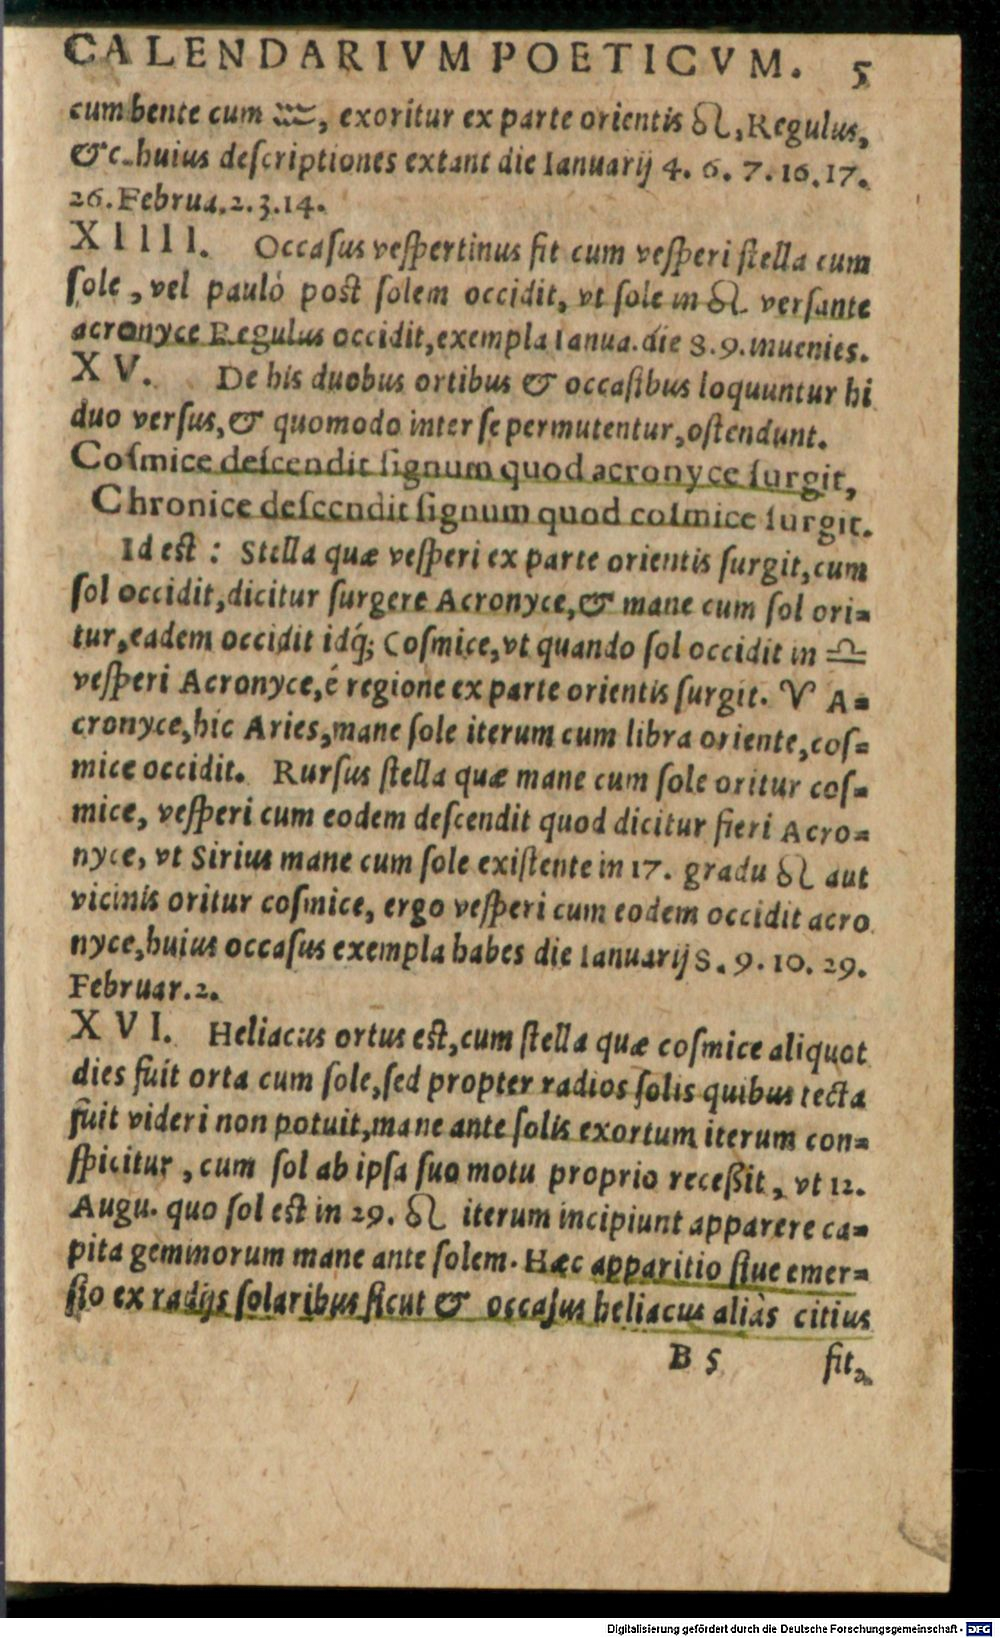 CALENDARIVM POETICVM. 5
cumbente cum ♒, exoritur ex parte orientis ♌, Regulus,
&c. huius deſcriptiones extant die Ianuarij 4. 6. 7. 16. 17.
26. Februa. 2. 3. 14.
XIIII. Occaſus veſpertinus fit cum veſperi ſtella cum
ſole, vel paulò poſt ſolem occidit, vt ſole in ♌ verſante
acronyce Regulus occidit, exempla Ianua. die 8. 9. inuenies.
XV. De his duobus ortibus & occaſibus loquuntur hi
duo verſus, & quomodo inter ſe permutentur, oſtendunt.
Coſmice deſcendit ſignum quod acronyce ſurgit,
Chronice deſcendit ſignum quod coſmice ſurgit.
Id eſt : Stella quæ veſperi ex parte orientis ſurgit, cum
ſol occidit, dicitur ſurgere Acronyce, & mane cum ſol ori=
tur, eadem occidit idq́; Coſmice, vt quando ſol occidit in ♎
veſperi Acronyce, é regione ex parte orientis ſurgit. ♈ A=
cronyce, hic Aries, mane ſole iterum cum libra oriente, coſ=
mice occidit. Rurſus ſtella quæ mane cum ſole oritur coſ=
mice, veſperi cum eodem deſcendit quod dicitur fieri Acro=
nyce, vt Sirius mane cum ſole exiſtente in 17. gradu ♌ aut
vicinis oritur coſmice, ergo veſperi cum eodem occidit acro
nyce, huius occaſus exempla habes die Ianuarij 8. 9. 10. 29.
Februar. 2.
XVI. Heliacus ortus eſt, cum ſtella quæ coſmice aliquot
dies fuit orta cum ſole, ſed propter radios ſolis quibus tecta
fuit videri non potuit, mane ante ſolis exortum iterum con=
ſpicitur, cum ſol ab ipſa ſuo motu proprio receßit, vt 12.
Augu. quo ſol eſt in 29. ♌ iterum incipiunt apparere ca=
pita geminorum mane ante ſolem. Hæc apparitio ſiue emer=
ſio ex radijs ſolaribus ſicut & occaſus heliacus aliàs citius
B 5 fit,
Digitalisierung gefördert durch die Deutsche Forschungsgemeinschaft - DFG